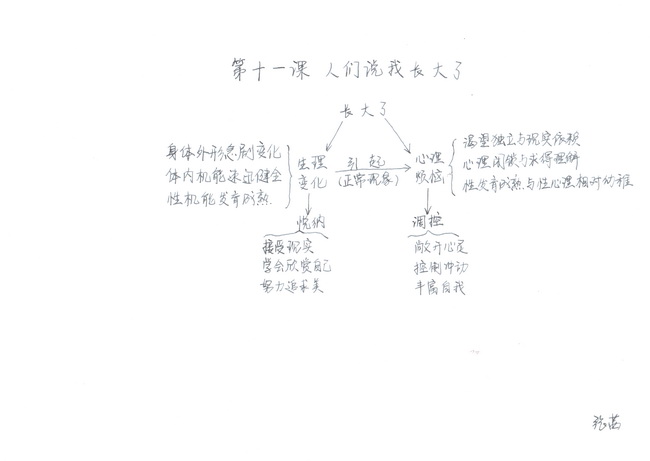 第十一课 人们说我长大了
长大了
身体外形急剧变化
体内机能迅速健全
性机能发育成熟
生理
变化
引起
(正常现象)
心理
烦恼
渴望独立与现实依赖
心理闭锁与求得理解
性发育成熟与性心理相对幼稚
悦纳
接受现实
学会欣赏自己
努力追求美
调控
敞开心扉
控制冲动
丰富自我